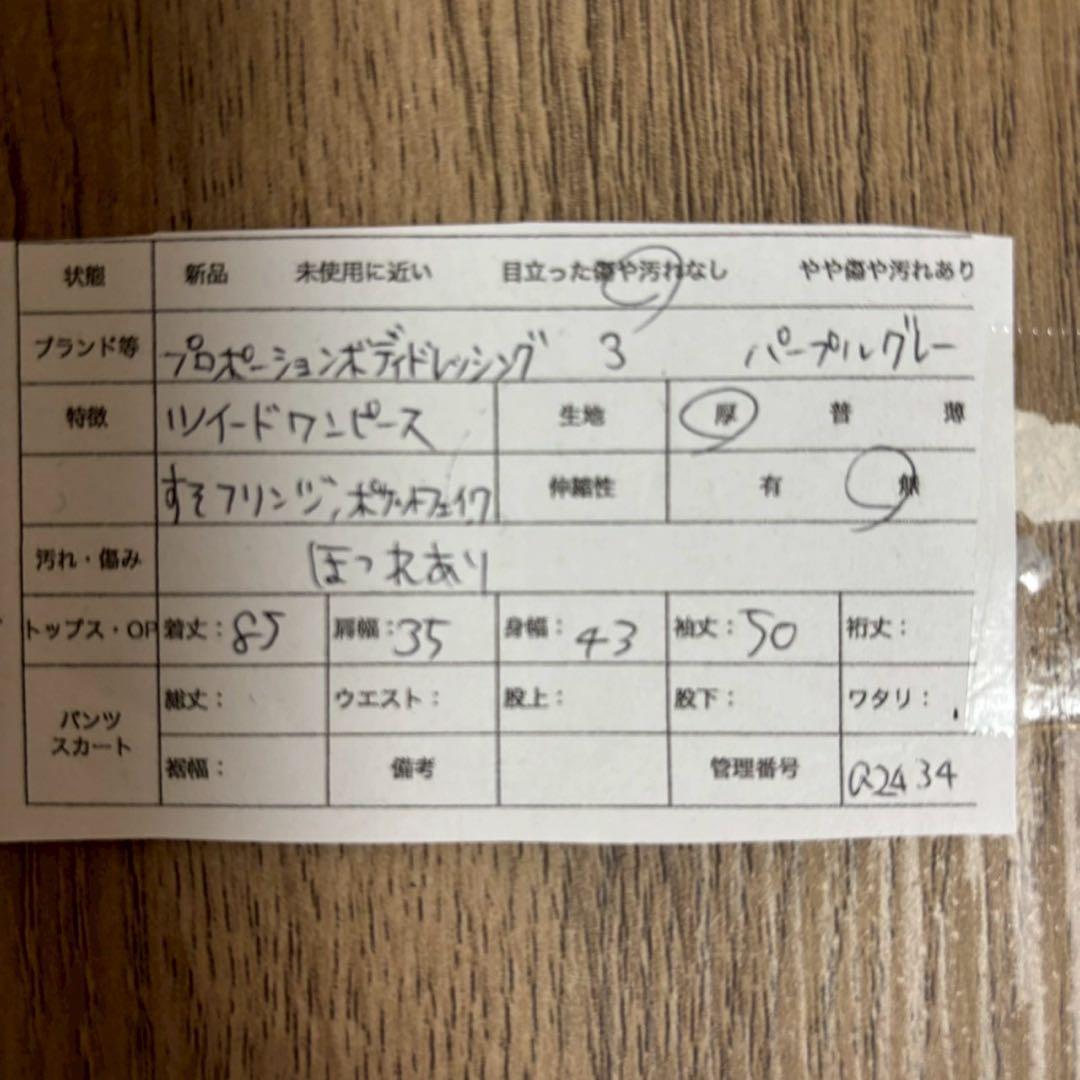 状態 新品 未使用に近い 目立った傷や汚れなし やや傷や汚れあり
ブランド等 プロポーションボディドレッシング 3 パープルグレー
特徴 ツイードワンピース 生地 厚 普 薄
すそフリンジ、ポケットフェイク 伸縮性 有 無
汚れ・傷み ほつれあり
トップス・OP 着丈:85 肩幅:35 身幅:43 袖丈:50 裄丈:
パンツ スカート 総丈: ウエスト: 股上: 股下: ワタリ:
裾幅: 備考 管理番号 Q2434